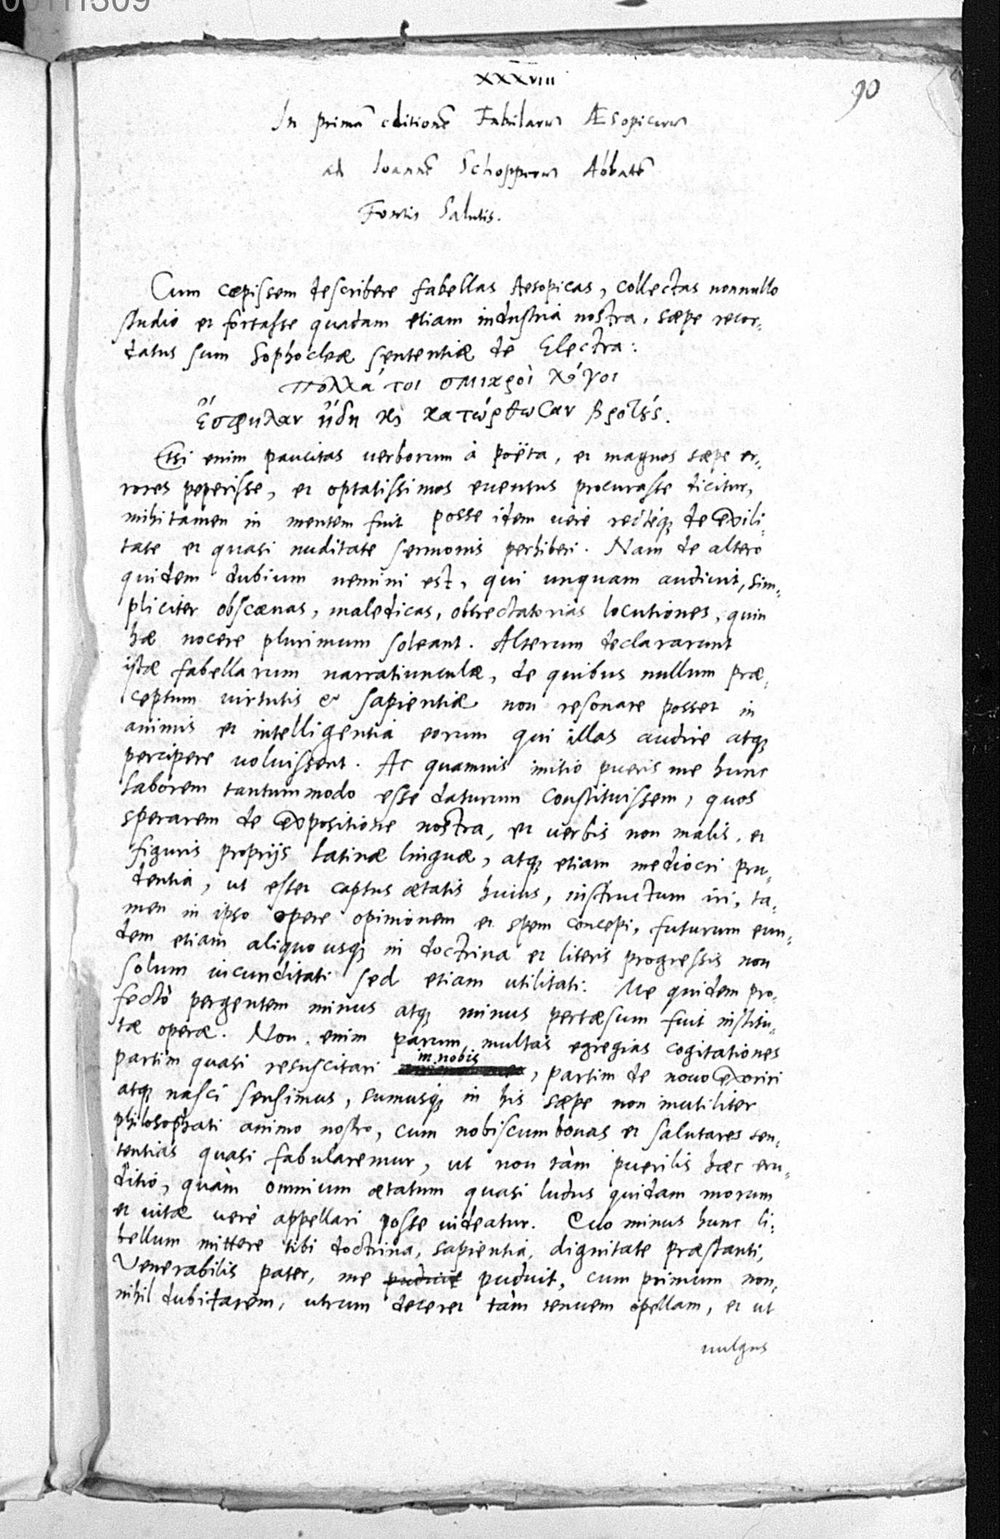 00111309
XXXVIII
90
In primā editionē Fabularum Æsopicarum
ad Ioannē Schopperum Abbatē
Fontis Salutis.
Cum cœpissem describere fabellas Aesopicas, collectas nonnullo
studio et fortasse quadam etiam industria nostra, sæpe recor-
datus sum Sophocleæ sententiæ de Electra:
Πολλά τοι σμικροὶ λόγοι
Ἔσφηλαν ἤδη κὶ κατώρθωσαν βροτούς.
Etsi enim paucitas verborum à poëta, et magnos sæpe er-
rores peperisse, et optatissimos euentus procurasse dicitur,
mihi tamen in mentem fuit posse idem vere recteq́; de exili-
tate et quasi nuditate sermonis perhiberi. Nam de altero
quidem dubium nemini est, qui unquam audiuit, sim-
pliciter obscænas, maledicas, obtrectatorias locutiones, quin
hæ nocere plurimum soleant. Alterum declararunt
istæ fabellarum narratiunculæ, de quibus nullum præ-
ceptum virtutis & sapientiæ non resonare posset in
animis et intelligentia eorum qui illas audire atq;
percipere voluissent. Ac quamuis initio pueris me hunc
laborem tantummodo esse daturum constituissem, quos
sperarem de expositione nostra, et verbis non malis, et
figuris proprijs latinæ linguæ, atq; etiam mediocri pru-
dentia, ut esset captus ætatis huius, instructum iri, ta-
men in ipso opere opinionem et spem concepi, futurum eun-
dem etiam aliquousq; in doctrina et literis progressis non
solum iucunditati sed etiam utilitati. Me quidem pro-
fectò pergentem minus atq; minus pertæsum fuit institu-
tæ operæ. Non enim parum multas egregias cogitationes
partim quasi resuscitari in nobis, partim de nouo exoriri
atq; nasci sensimus, sumusq́; in his sæpe non inutiliter
philosophati animo nostro, cum nobiscum bonas et salutares sen-
tentias quasi fabularemur, ut non tàm puerilis hæc eru-
ditio, quàm omnium ætatum quasi ludus quidam morum
et vitæ verè appellari posse uideatur. Quo minus hunc li-
bellum mittere tibi doctrina, sapientia, dignitate præstanti,
Venerabilis pater, me puduit, cum primum non-
nihil dubitarem, utrum deceret tàm tenuem opellam, et ut
uulgus